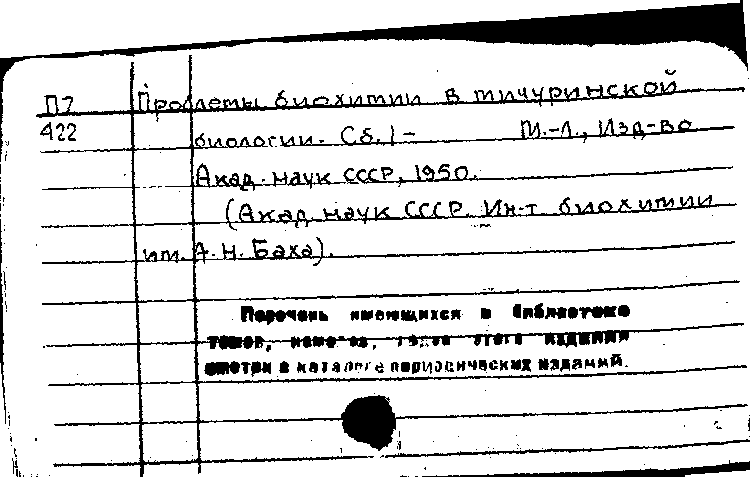 П7 Проблемы биохимии в мичуринской
422 биологии. Сб. 1- М.-Л., Изд-во
Акад. наук СССР, 1950.
(Акад. наук СССР. Ин-т биохимии
им. А. Н. Баха).
Перечень имеющихся в библиотеке
томов, номеров, годов этого издания
смотри в каталоге периодических изданий.